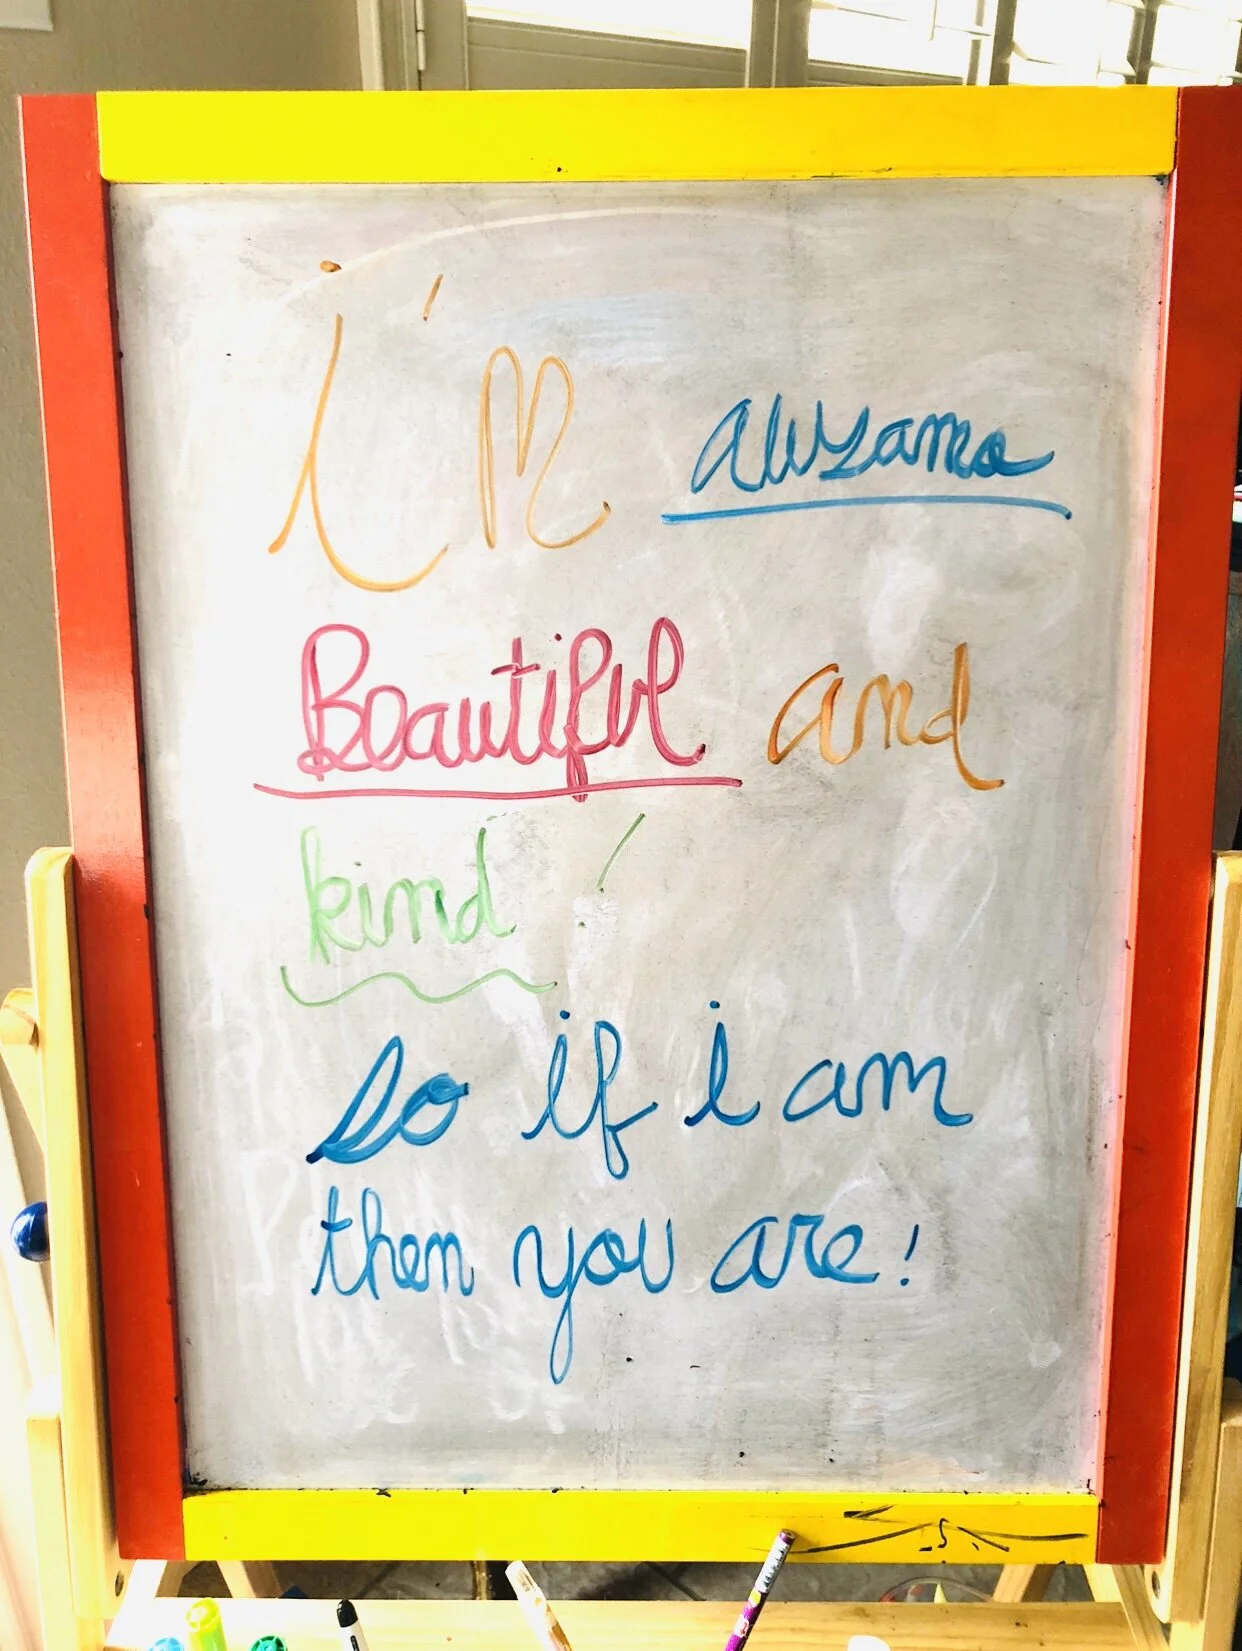 i'm awzame
Beautiful and
kind!
So if i am
then you are!